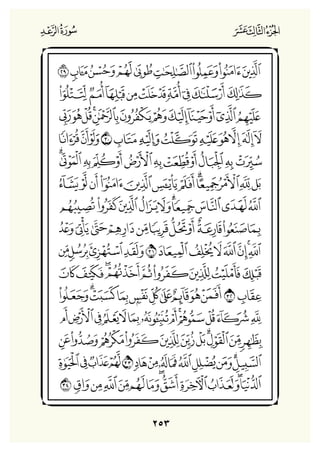 الجُزْءُ الثَّالِثَ عَشَرَ سُورَةُ الرَّعْدِ
ٱلَّذِينَ ءَامَنُوا۟ وَعَمِلُوا۟ ٱلصَّـٰلِحَـٰتِ طُوبَىٰ لَهُمْ وَحُسْنُ مَـَٔابٍ ٢٩
كَذَٰلِكَ أَرْسَلْنَـٰكَ فِىٓ أُمَّةٍ قَدْ خَلَتْ مِن قَبْلِهَآ أُمَمٌ لِّتَتْلُوَا۟
عَلَيْهِمُ ٱلَّذِىٓ أَوْحَيْنَآ إِلَيْكَ وَهُمْ يَكْفُرُونَ بِٱلرَّحْمَـٰنِ ۚ قُلْ هُوَ رَبِّى
لَآ إِلَـٰهَ إِلَّا هُوَ عَلَيْهِ تَوَكَّلْتُ وَإِلَيْهِ مَتَابِ ٣٠ وَلَوْ أَنَّ قُرْءَانًا
سُيِّرَتْ بِهِ ٱلْجِبَالُ أَوْ قُطِّعَتْ بِهِ ٱلْأَرْضُ أَوْ كُلِّمَ بِهِ ٱلْمَوْتَىٰ ۗ
بَل لِّلَّهِ ٱلْأَمْرُ جَمِيعًا ۗ أَفَلَمْ يَا۟يْـَٔسِ ٱلَّذِينَ ءَامَنُوٓا۟ أَن لَّوْ يَشَآءُ
ٱللَّهُ لَهَدَى ٱلنَّاسَ جَمِيعًا ۗ وَلَا يَزَالُ ٱلَّذِينَ كَفَرُوا۟ تُصِيبُهُم
بِمَا صَنَعُوا۟ قَارِعَةٌ أَوْ تَحُلُّ قَرِيبًا مِّن دَارِهِمْ حَتَّىٰ يَأْتِىَ وَعْدُ
ٱللَّهِ ۚ إِنَّ ٱللَّهَ لَا يُخْلِفُ ٱلْمِيعَادَ ٣١ وَلَقَدِ ٱسْتُهْزِئَ بِرُسُلٍ مِّن
قَبْلِكَ فَأَمْلَيْتُ لِلَّذِينَ كَفَرُوا۟ ثُمَّ أَخَذْتُهُمْ ۖ فَكَيْفَ كَانَ
عِقَابِ ٣٢ أَفَمَنْ هُوَ قَآئِمٌ عَلَىٰ كُلِّ نَفْسٍۭ بِمَا كَسَبَتْ ۗ وَجَعَلُوا۟
لِلَّهِ شُرَكَآءَ قُلْ سَمُّوهُمْ ۚ أَمْ تُنَبِّـُٔونَهُۥ بِمَا لَا يَعْلَمُ فِى ٱلْأَرْضِ أَم
بِظَـٰهِرٍ مِّنَ ٱلْقَوْلِ ۗ بَلْ زُيِّنَ لِلَّذِينَ كَفَرُوا۟ مَكْرُهُمْ وَصُدُّوا۟ عَنِ
ٱلسَّبِيلِ ۗ وَمَن يُضْلِلِ ٱللَّهُ فَمَا لَهُۥ مِنْ هَادٍ ٣٣ لَّهُمْ عَذَابٌ فِى ٱلْحَيَوٰةِ
ٱلدُّنْيَا ۖ وَلَعَذَابُ ٱلْـَٔاخِرَةِ أَشَقُّ ۖ وَمَا لَهُم مِّنَ ٱللَّهِ مِن وَاقٍ ٣٤
٢٥٣